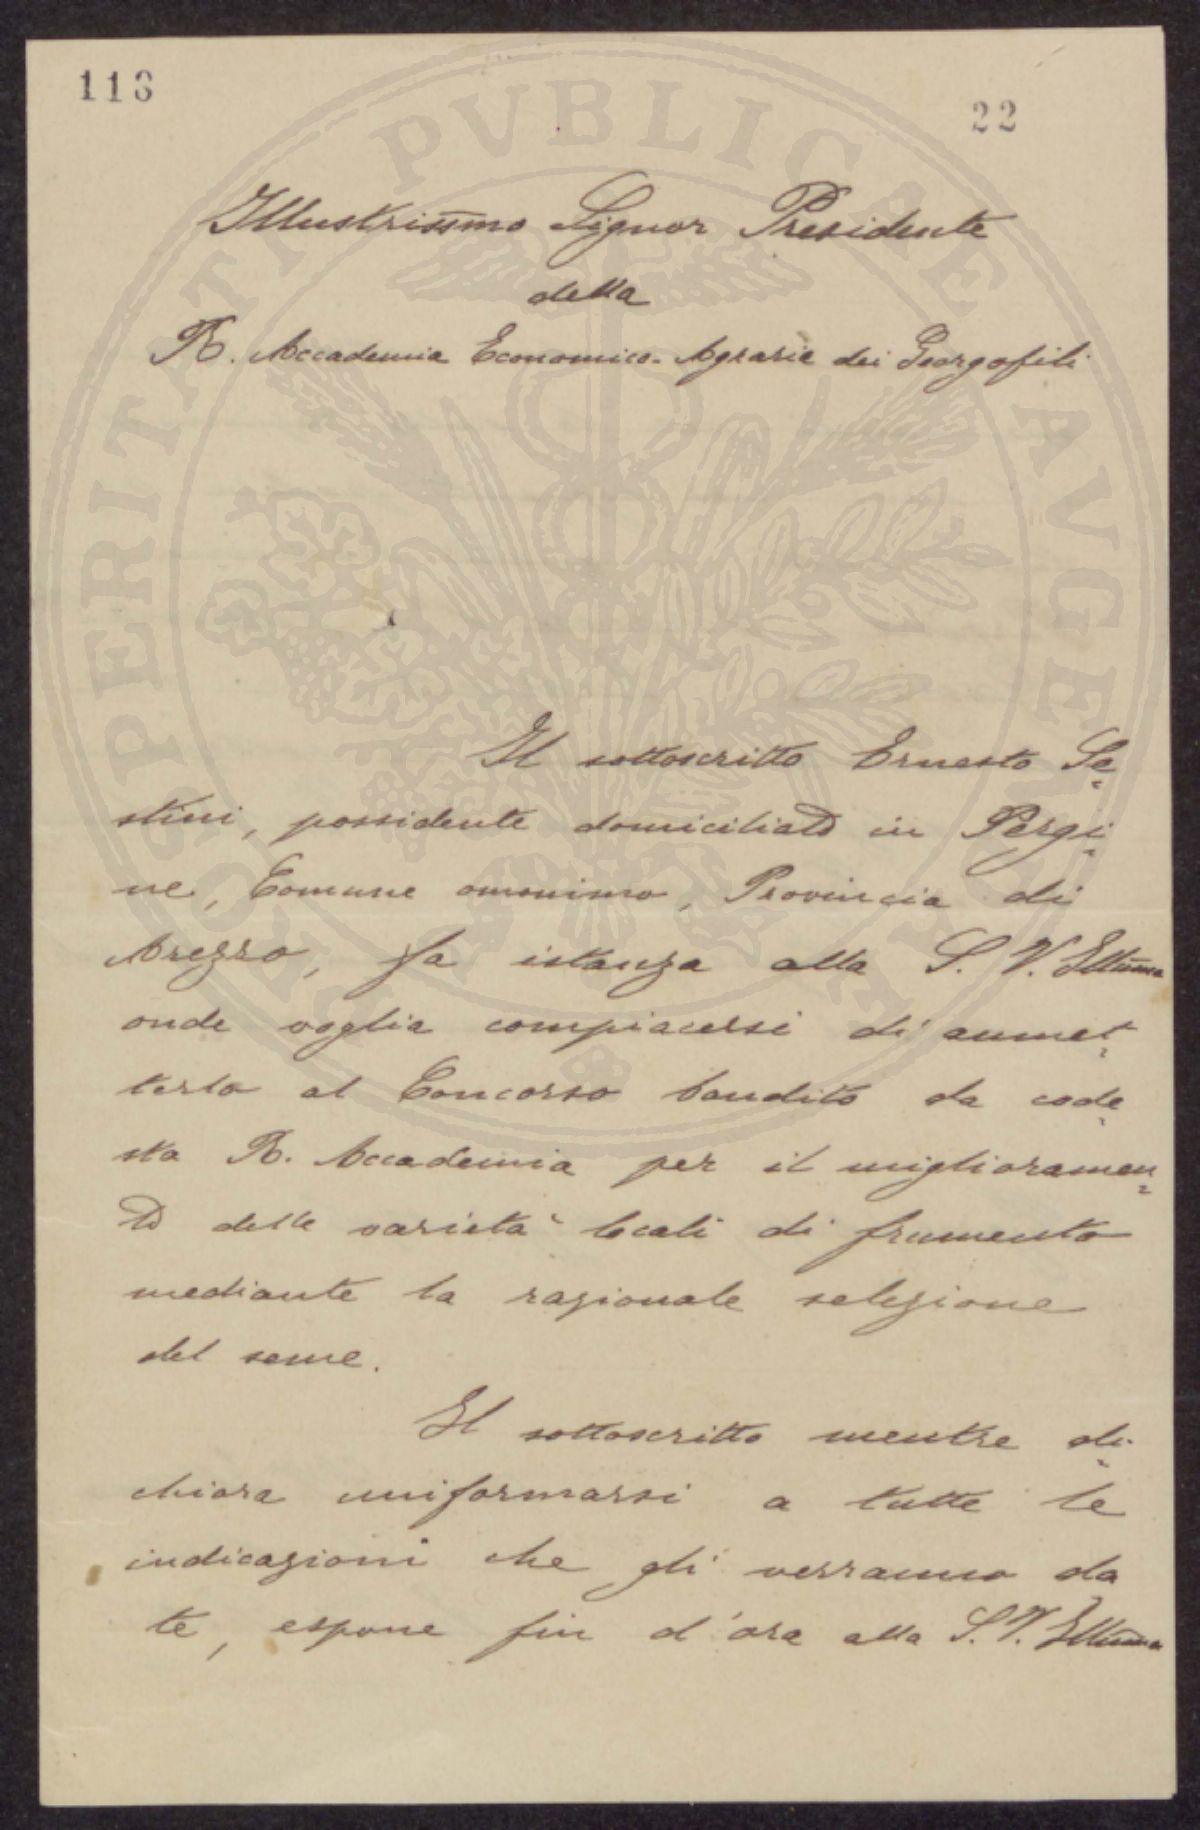 113
22
Illustrissimo Signor Presidente
della
R. Accademia Economico-Agraria dei Georgofili
Il sottoscritto Ernesto Se=
stini, possidente domiciliato in Pergi=
ne, Comune omonimo, Provincia di
Arezzo, fa istanza alla S. V. Illma
onde voglia compiacersi di ammet=
terlo al Concorso bandito da code=
sta R. Accademia per il miglioramen=
to delle varietà locali di frumento
mediante la razionale selezione
del seme.
Il sottoscritto mentre di=
chiara uniformarsi a tutte le
indicazioni che gli verranno da
te, espone fin d'ora alla S. V. Illma
PROSPERITATI PVBLICAE AVGENDAE